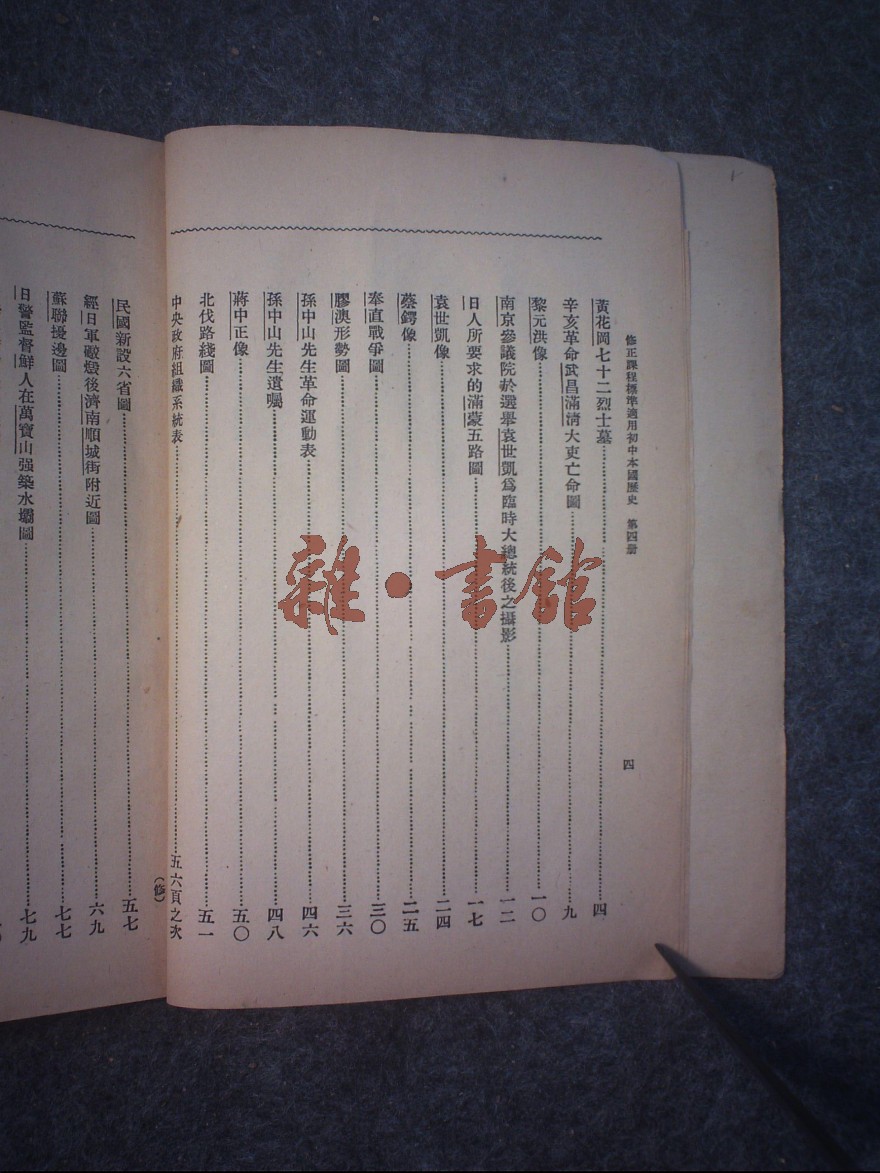 修正課程標準適用初中本國歷史 第四册 四
黃花岡七十二烈士墓 四
辛亥革命武昌滿淸大吏亡命圖 九
黎元洪像 一〇
南京參議院於選舉袁世凱爲臨時大總統後之攝影 一二
日人所要求的滿蒙五路圖 一七
袁世凱像 二四
蔡鍔像 二五
奉直戰爭圖 三〇
膠澳形勢圖 三六
孫中山先生革命運動表 四六
孫中山先生遺囑 四八
蔣中正像 五〇
北伐路綫圖 五一
中央政府組織系統表 五六頁之次
(修)
民國新設六省圖 五七
經日軍礮燬後濟南順城街附近圖 六九
蘇聯擾邊圖 七七
日警監督鮮人在萬寶山强築水壩圖 七九
雜·書館